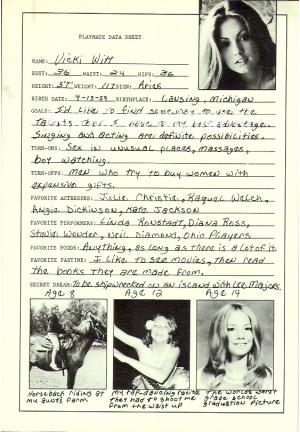 PLAYMATE DATA SHEET
NAME: Vicki Witt
BUST: 36 WAIST: 24 HIPS: 36
HEIGHT: 5'7" WEIGHT: 117 SIGN: Aries
BIRTH DATE: 4-13-59 BIRTHPLACE: Lansing, Michigan
GOALS: I'd like to find someway to use the
talents that I have to my best advantage.
Singing and acting are definite possibilities.
TURN-ONS: Sex in unusual places, massages,
boy watching.
TURN-OFFS: men who try to buy women with
expensive gifts.
FAVORITE ACTRESSES: Julie Christie, Raquel Welch,
Angie Dickinson, Kate Jackson
FAVORITE PERFORMERS: Linda Ronstadt, Diana Ross,
Stevie Wonder, Neil Diamond, Ohio Players
FAVORITE FOODS: Anything, as long as there is a lot of it.
FAVORITE PASTIME: I like to see movies, then read
the books they are made from.
SECRET DREAM: To be shipwrecked on an island with Lee Majors.
Age 8 Age 12 Age 14
Horseback riding at
my aunts farm
My tap-dancing recital
they had to shoot me
from the waist up
The worlds worst
grade school
graduation picture